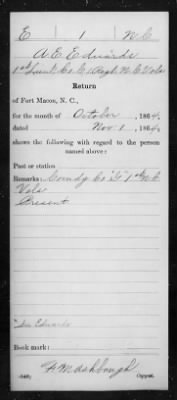 E | 1 | N C
A E Edwards
1st Lieut, Co. E, 1 Regt. N. C. Vols
Return
of Fort Macon, N. C.,
for the month of October, 1864
dated Nov 1, 1864.
shows the following with regard to the person
named above:
Post or station
Remarks: Comdg Co "F" 1st N.C.
Vols
Present
Edwards
Book mark:
(546) Copyist.